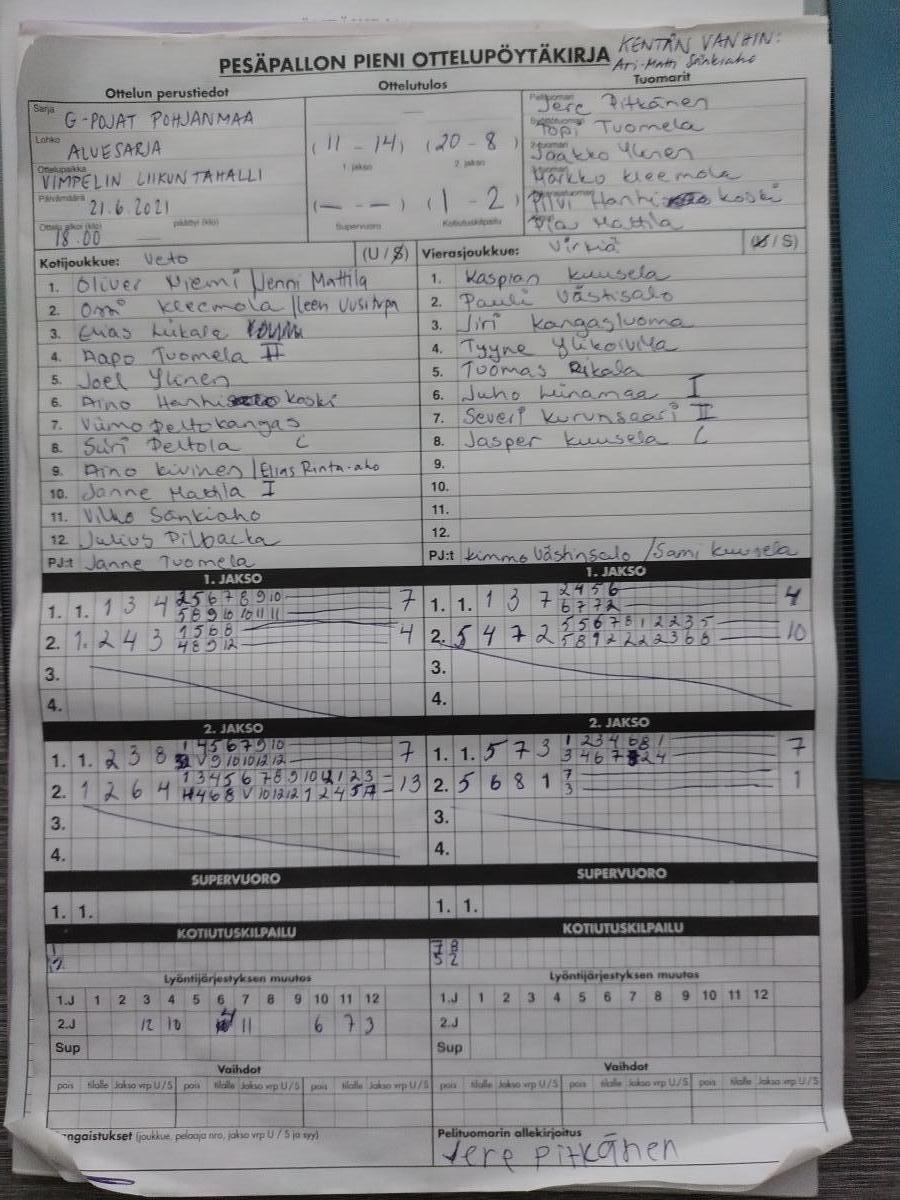 KENTÄN VANHIN:
Ari-Matti Sänkiaho
PESÄPALLON PIENI OTTELUPÖYTÄKIRJA
Ottelun perustiedot
Ottelutulos
Tuomarit
Sarja G-POJAT POHJANMAA
Lohko ALUESARJA
Ottelupaikka VIMPELIN LIIKUNTAHALLI
Päivämäärä 21.6.2021
Ottelu alkoi (klo) 18.00 päättyi (klo) —
(11 - 14) (20 - 8)
1. jakso 2. jakso
(— - —) (1 - 2)
Supervuoro Kotiutuskilpailu
Jere Pitkänen
Topi Tuomela
Jaakko Ylinen
Markko Kleemola
Piivi Hanhikoski
Pia Mattila
Kotijoukkue: Veto (U / S)
1. Oliver Niemi / Jenni Mattila
2. Onni Kleemola / Leen Uusitupa
3. Elias Liikala
4. Aapo Tuomela II
5. Joel Ylinen
6. Aino Hanhikoski
7. Viimo Peltokangas
8. Siiri Peltola C
9. Aino Kivinen / Elias Rinta-aho
10. Janne Mattila I
11. Vilho Sänkiaho
12. Julius Pilbacka
PJ:t Janne Tuomela
Vierasjoukkue: Virkiä (U / S)
1. Kaspian Kuusela
2. Pauli Västisalo
3. Jiri Kangasluoma
4. Tyyne Ylikoivula
5. Tuomas Rikala
6. Juho Liinamaa I
7. Severi Kurunsaari II
8. Jasper Kuusela C
9.
10.
11.
12.
PJ:t Kimmo Västinsalo / Sami Kuusela
1. JAKSO
1. 1. 1 3 4 2 5 6 7 8 9 10 7
5 8 9 10 10 11 11
2. 1. 2 4 3 1 5 6 8 4
4 8 9 12
3.
4.
1. JAKSO
1. 1. 1 3 7 2 4 5 6 4
6 7 7 2
2. 5 4 7 2 5 5 6 7 8 1 2 2 3 5 10
5 8 1 2 2 2 2 3 6 8
3.
4.
2. JAKSO
1. 1. 2 3 8 1 4 5 6 7 9 10 7
V 9 10 10 12 12
2. 1 2 6 4 1 3 4 5 6 7 8 9 10 11 1 2 3 13
4 4 6 8 V 10 12 12 1 2 4 5 7
3.
4.
2. JAKSO
1. 1. 5 7 3 1 2 3 4 6 8 1 7
3 4 6 7 8 2 4
2. 5 6 8 1 7 1
3
3.
4.
SUPERVUORO
1. 1.
SUPERVUORO
1. 1.
KOTIUTUSKILPAILU
1
12
KOTIUTUSKILPAILU
7 8
5 2
Lyöntijärjestyksen muutos
1.J 1 2 3 4 5 6 7 8 9 10 11 12
2.J 12 10 4 11 6 7 3
Sup
Lyöntijärjestyksen muutos
1.J 1 2 3 4 5 6 7 8 9 10 11 12
2.J
Sup
Vaihdot
pois tilalle Jakso vrp U / S pois tilalle Jakso vrp U / S pois tilalle Jakso vrp U / S
Vaihdot
pois tilalle Jakso vrp U / S pois tilalle Jakso vrp U / S pois tilalle Jakso vrp U / S
ngaistukset (joukkue, pelaaja nro, jakso vrp U / S ja syy)
Pelituomarin allekirjoitus
Jere Pitkänen